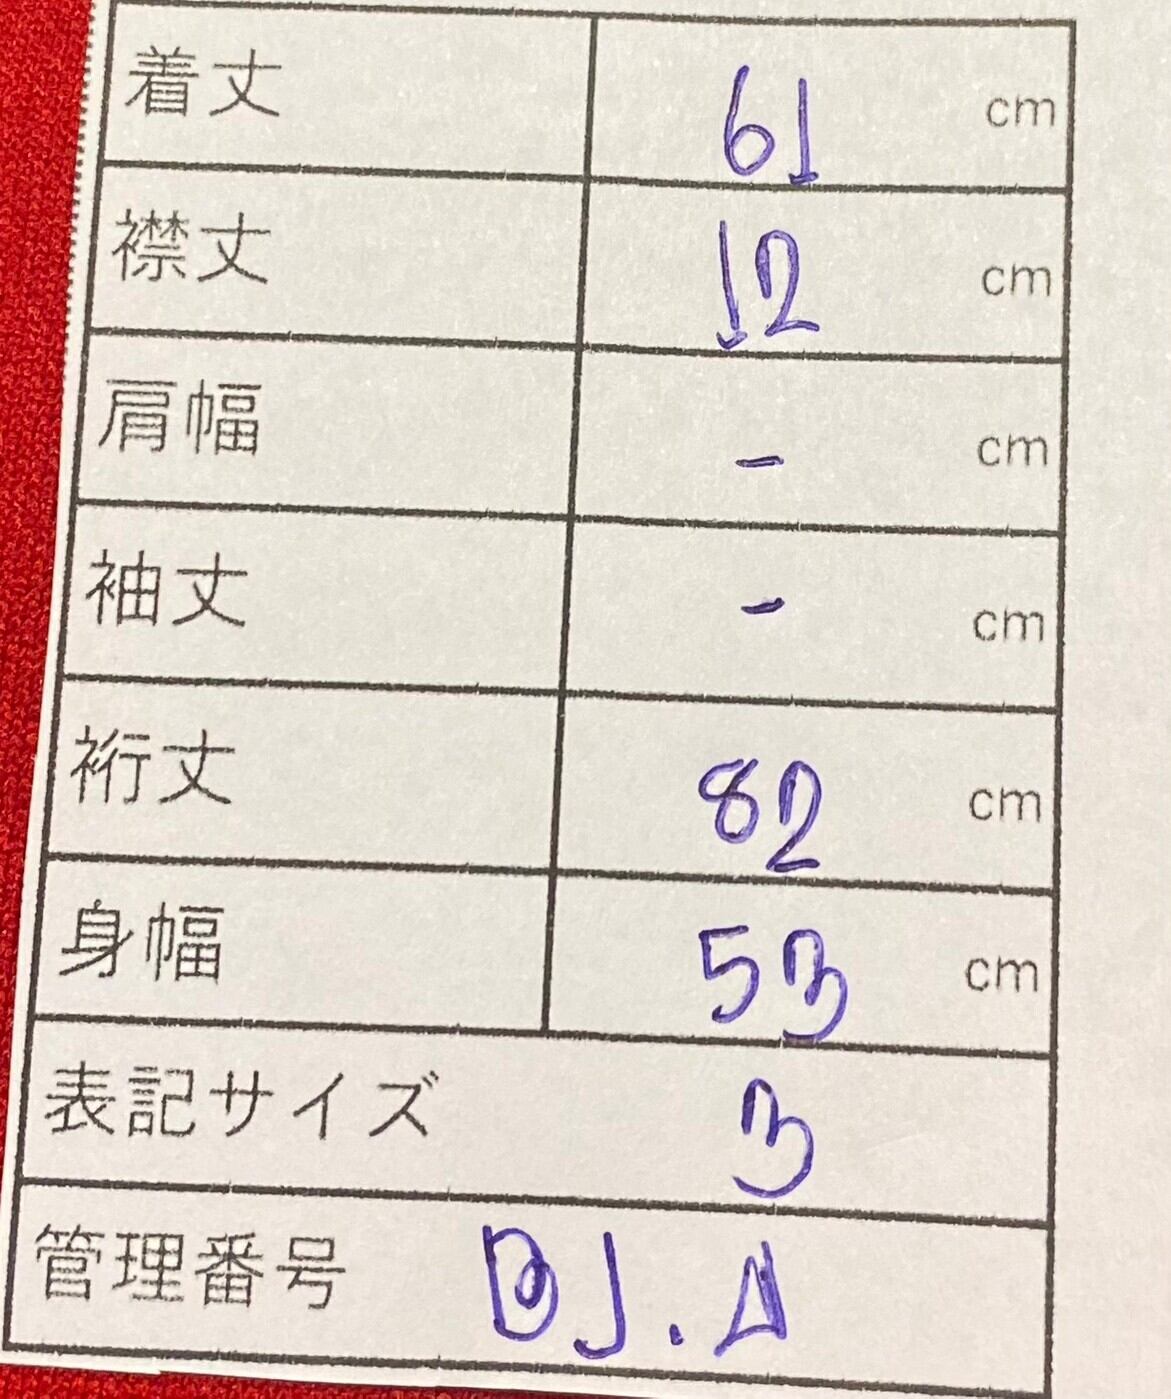 着丈 61 cm
襟丈 12 cm
肩幅 - cm
袖丈 - cm
裄丈 82 cm
身幅 53 cm
表記サイズ 3
管理番号